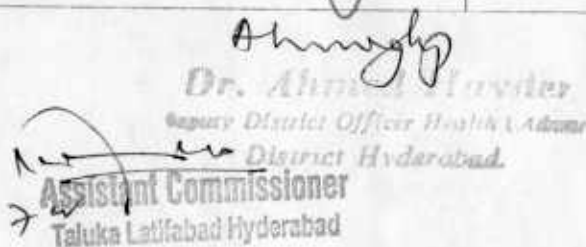 Dr. Ahmed Hayder
Deputy District Officer Health (Admn
District Hyderabad.
Assistant Commissioner
Taluka Latifabad Hyderabad